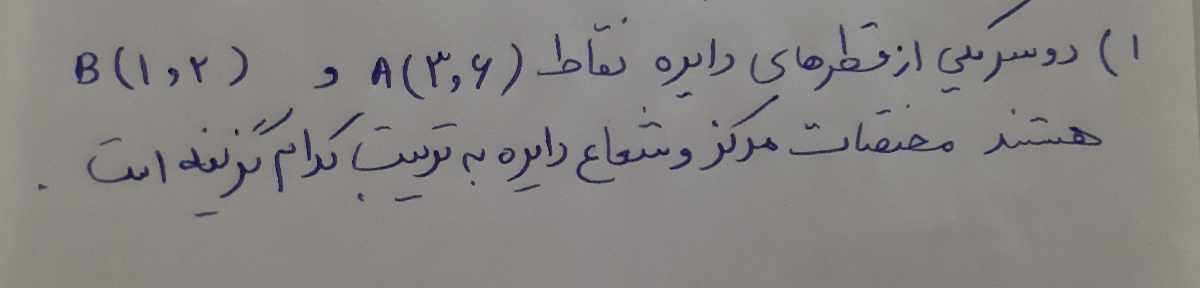 ۱) دو سر یکی از قطرهای دایره نقاط A(۳,۶) و B(۱,۲)
هستند مختصات مرکز و شعاع دایره به ترتیب کدام گزینه است .